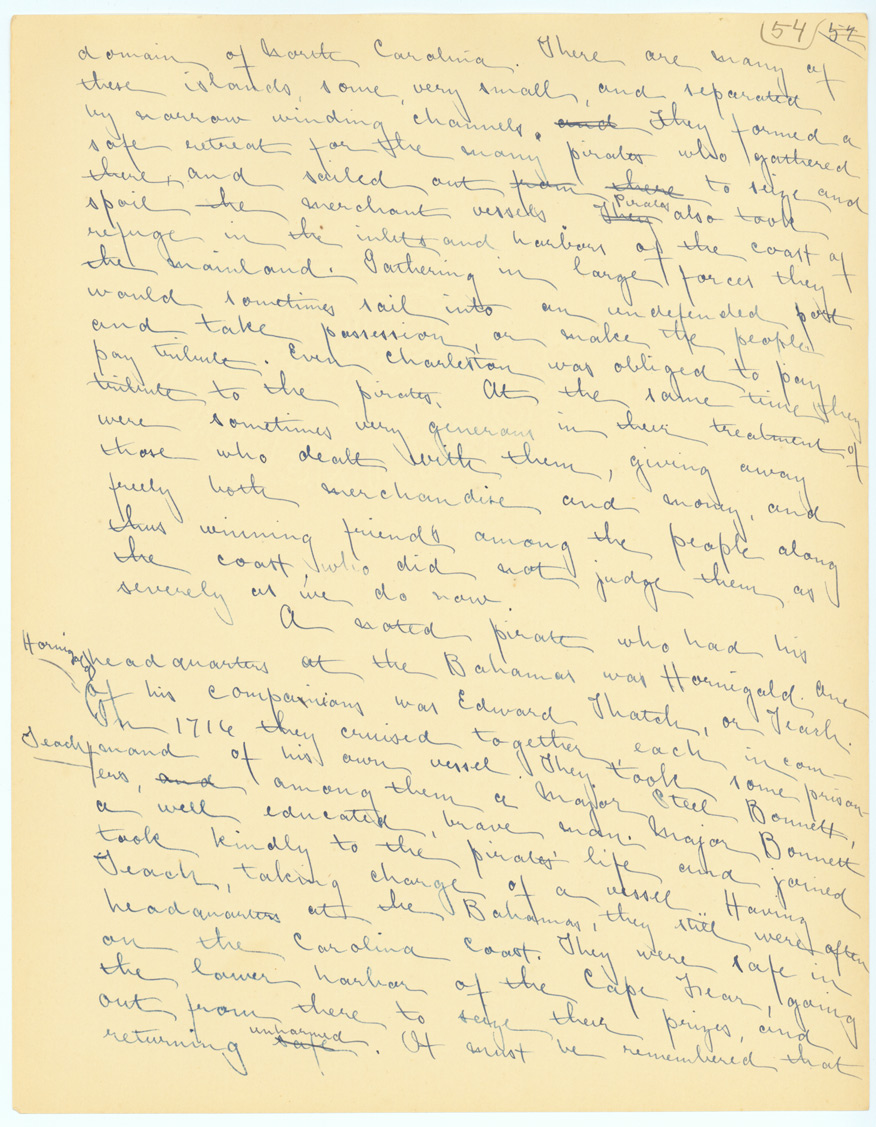 54 52
domain of North Carolina. There are many of
these islands, some very small, and separated
by narrow winding channels. and They formed a
safe retreat for the many pirates who gathered
there, and sailed out from there to seize and
spoil the merchant vessels They Pirates also took
refuge in the inlets and harbors of the coast of
the mainland. Gathering in large forces they
would sometimes sail into an undefended port
and take possession, or make the people
pay tribute. Even Charleston was obliged to pay
tribute to the pirates. At the same time they
were sometimes very generous in their treatment of
those who dealt with them, giving away
freely both merchandise and money, and
thus winning friends among the people along
the coast, who did not judge them as
severely as we do now.
A noted pirate who had his
Hornigold
headquarters at the Bahamas was Hornigald. One
of his compainians was Edward Thatch, or Teach.
In 1716 they cruised together, each in com-
Teach
mand of his own vessel. They took some prison-
ers, and among them a Major Steel Bonnett,
a well educated, brave man. Major Bonnett
took kindly to the pirates' life and joined
Teach, taking charge of a vessel. Having
headquarters at the Bahamas, they still were often
on the Carolina coast. They were safe in
the lower harbor of the Cape Fear, going
out from there to seize their prizes, and
returning safe unharmed. It must be remembered that